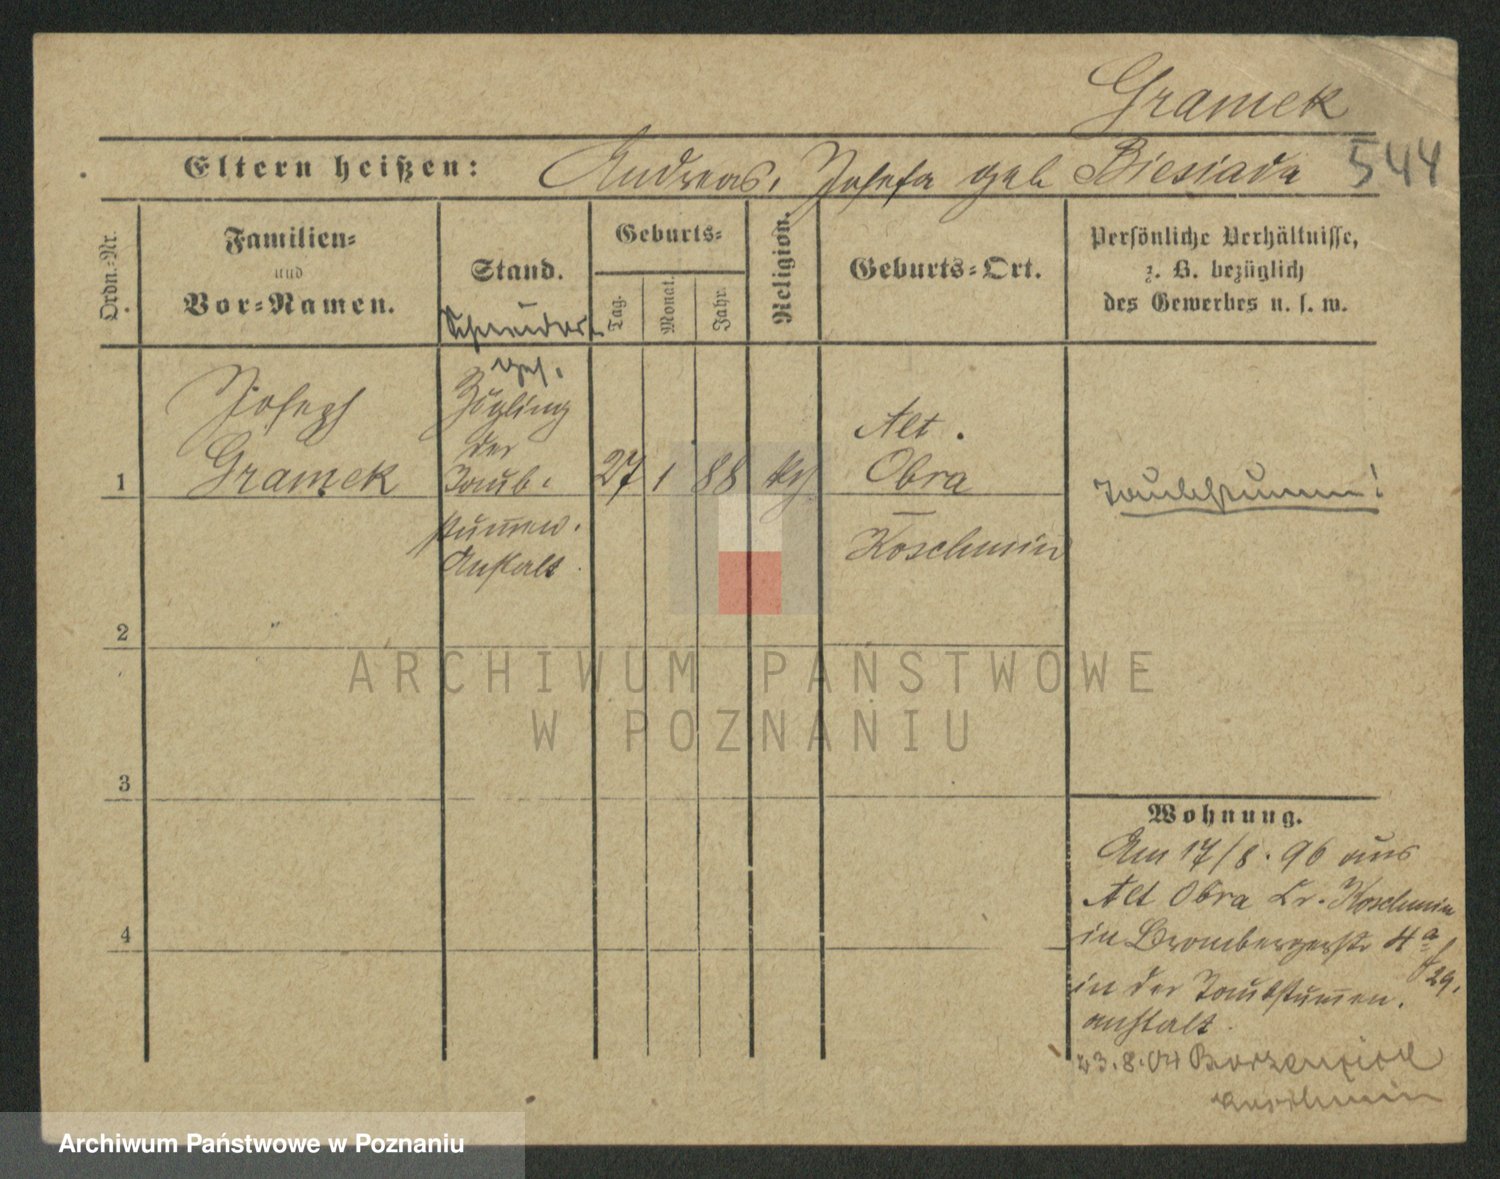 Gramek
544
Eltern heißen: Andreas, Josefa geb Biesiada
Ordn.-Nr.
Familien-
und
Vor-Namen.
Stand.
Geburts-
Tag.
Monat.
Jahr.
Religion.
Geburts-Ort.
Persönliche Verhältnisse,
z. B. bezüglich
des Gewerbes u. s. w.
Schneider
ges.
1
Joseph
Gramek
Zögling
der
Taub-
stummen.
Anstalt
27
1
88
kth
Alt.
Obra
Koschmin
Taubstumm!
2
3
4
Wohnung.
Am 17/8. 96 aus
Alt Obra Kr. Koschmin
in Brombergerstr 4a
f 29.
in der Taubstummen.
anstalt.
23.8.04
ARCHIWUM PAŃSTWOWE
W POZNANIU
Archiwum Państwowe w Poznaniu